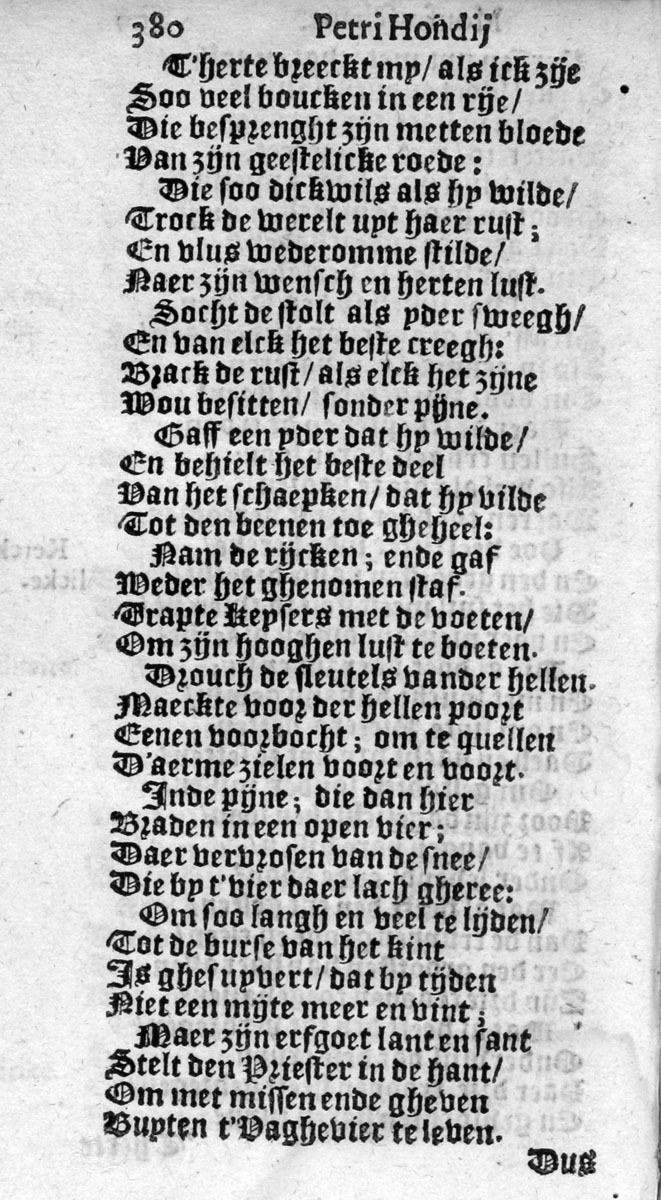 380 Petri Hondij
T'herte breeckt my/ als ick zije
Soo veel boucken in een rije/
Die besprenght zijn metten bloede
Van zijn geestelicke roede:
Die soo dickwils als hy wilde/
Trock de werelt uyt haer rust;
En vlus wederomme stilde/
Naer zijn wensch en herten lust.
Socht de stolt als yder sweegh/
En van elck het beste creegh:
Brack de rust/ als elck het zijne
Wou besitten/ sonder pijne.
Gaff een yder dat hy wilde/
En behielt het beste deel
Van het schaepken/ dat hy vilde
Tot den beenen toe gheheel:
Nam de rijcken; ende gaf
Weder het ghenomen staf.
Trapte Keysers met de voeten/
Om zijn hooghen lust te boeten.
Drouch de sleutels vander hellen.
Maeckte voor der hellen poort
Eenen voorbocht; om te quellen
D'aerme zielen voort en voort.
Inde pijne; die dan hier
Braden in een open vier;
Daer vervrosen van de snee/
Die by t'vier daer lach gheree:
Om soo langh en veel te lijden/
Tot de burse van het kint
Is ghesuyvert/ dat by tijden
Niet een mijte meer en vint;
Maer zijn erfgoet lant en sant
Stelt den Priester in de hant/
Om met missen ende gheven
Buyten t'Vaghevier te leven.
Dus